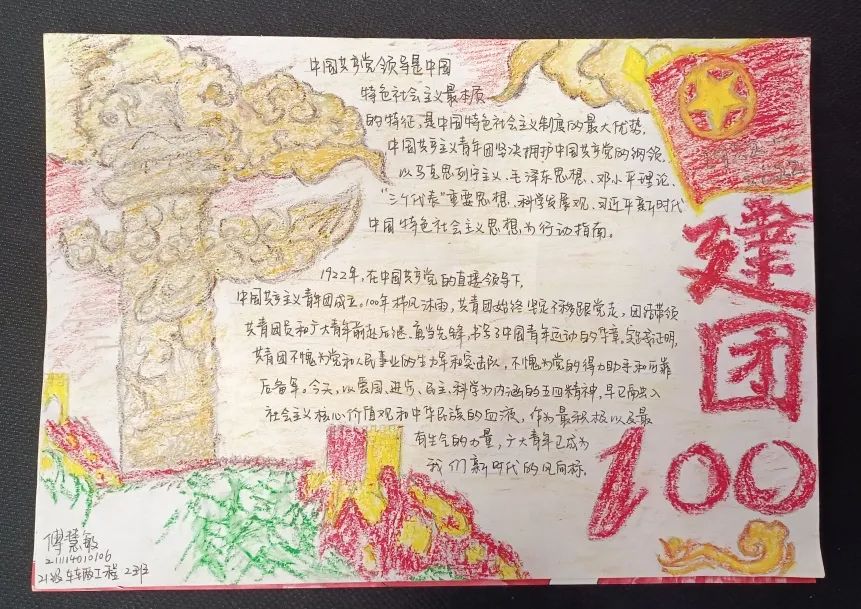 中国共产党领导是中国
特色社会主义最本质
的特征,是中国特色社会主义制度的最大优势,
中国共产主义青年团坚决拥护中国共产党的纲领,
以马克思列宁主义、毛泽东思想、邓小平理论、
"三个代表"重要思想、科学发展观、习近平新时代
中国特色社会主义思想为行动指南。
1922年,在中国共产党的直接领导下,
中国共产主义青年团成立。100年栉风沐雨,共青团始终坚定不移跟党走,团结带领
共青团员和广大青年前赴后继、勇当先锋,书写了中国青年运动的华章。实践证明,
共青团不愧为党和人民事业的生力军和突击队,不愧为党的得力助手和可靠
后备军。今天,以爱国、进步、民主、科学为内涵的五四精神,早已融入
社会主义核心价值观和中华民族的血液,作为最积极以及最
有生命的力量,广大青年已成为
我们新时代的风向标.
建
团
100
傅慧敏
21114010106
21级车辆工程2班